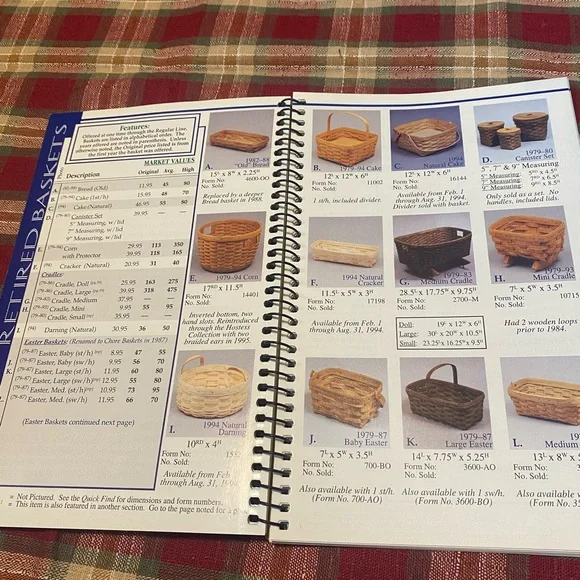 RETIRED BASKETS
Features:
Offered at one time through the Regular Line.
Baskets are listed in alphabetical order. The
years offered are noted in parenthesis. Unless
otherwise noted, the Original price listed is from
the first year the basket was offered.
MARKET VALUES
Description Original Avg. High
Bread (Old) 11.95 45 80
Cake (1st/h) 15.95 48 70
Cake (Natural) 46.95 55 80
Canister Set 39.95 — —
5" Measuring, w/lid
7" Measuring, w/lid
9" Measuring, w/lid
E. (79-94) Corn 29.95 113 350
with Protector 39.95 118 165
F. (94) Cracker (Natural) 20.95 31 40
Cradles:
(79-86) Cradle, Doll 25.95 163 275
(79-86) Cradle, Large 39.95 318 475
Cradle, Medium 37.95 — —
Cradle, Mini 9.95 55 95
Cradle, Small 35.95 — —
I. (94) Darning (Natural) 30.95 36 50
Easter Baskets: (Renamed to Chore Baskets in 1987)
J. (79-87) Easter, Baby (st/h) 8.95 47 55
(79-87) Easter, Baby (sw/h) 9.95 56 70
K. (79-87) Easter, Large (st/h) 11.95 60 80
(79-87) Easter, Large (sw/h) 12.95 55 80
(79-87) Easter, Med. (st/h) 10.95 73 95
L. (79-87) Easter, Med. (sw/h) 11.95 66 70
(Easter Baskets continued next page)
= Not Pictured. See the Quick Find for dimensions and form numbers.
= This item is also featured in another section. Go to the page noted for a
A. 1982-88
"Old" Bread
15L x 8W x 2.25H
Form No: 4600-OO
No. Sold:
Replaced by a deeper
Bread basket in 1988.
E. 1979-94 Corn
17RD x 11.5H
Form No: 14401
No. Sold:
Inverted bottom, two
hand slots. Reintroduced
through the Hostess
Collection with two
braided ears in 1995.
I. 1994 Natural
Darning
10RD x 4H
Form No:
No. Sold:
Available from Feb.
through Aug. 31, 1994.
B. 1979-94 Cake
12L x 12W x 6H
Form No: 11002
No. Sold:
1 st/h, included divider.
C. 1994
Natural Cake
12L x 12W x 6H
Form No: 16144
No. Sold:
Available from Feb. 1
through Aug. 31, 1994.
Divider sold with basket.
D. 1979-80
Canister Set
5", 7" & 9" Measuring
5" Measuring:
7" Measuring:
9" Measuring:
Only sold as a set. No
handles, included lids.
F. 1994
Natural Cracker
11.5L x 5W x 3H
Form No: 17198
No. Sold:
Available from Feb. 1
through Aug. 31, 1994.
G. 1979-83
Medium Cradle
28.5L x 17.75W x 9.75H
Form No: 2700-M
No. Sold:
Doll: 19L x 12W x 6H
Large: 30L x 20W x 10.5H
Small: 23.25L x 16.25W x 9.5H
H. 1979-93
Mini Cradle
7L x 5W x 3.5H
Form No: 10715
No. Sold:
Had 2 wooden loops
prior to 1984.
J. 1979-87
Baby Easter
7L x 5W x 3.5H
Form No: 700-BO
No. Sold:
Also available with 1 st/h.
(Form No. 700-AO)
K. 1979-87
Large Easter
14L x 7.75W x 5.25H
Form No: 3600-AO
No. Sold:
Also available with 1 sw/h.
(Form No. 3600-BO)
L. 1979
Medium
13L x 8W x 5
Form No:
No. Sold:
Also available with
(Form No.